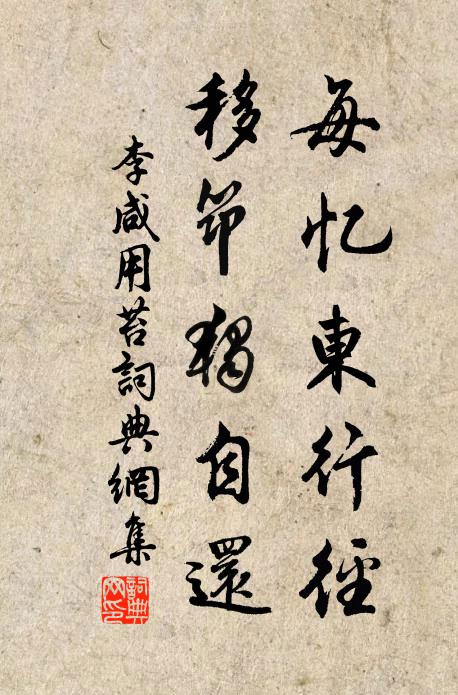 每忆東行徑
移笻獨自還
李咸用苔詞典網集
詞典
网印